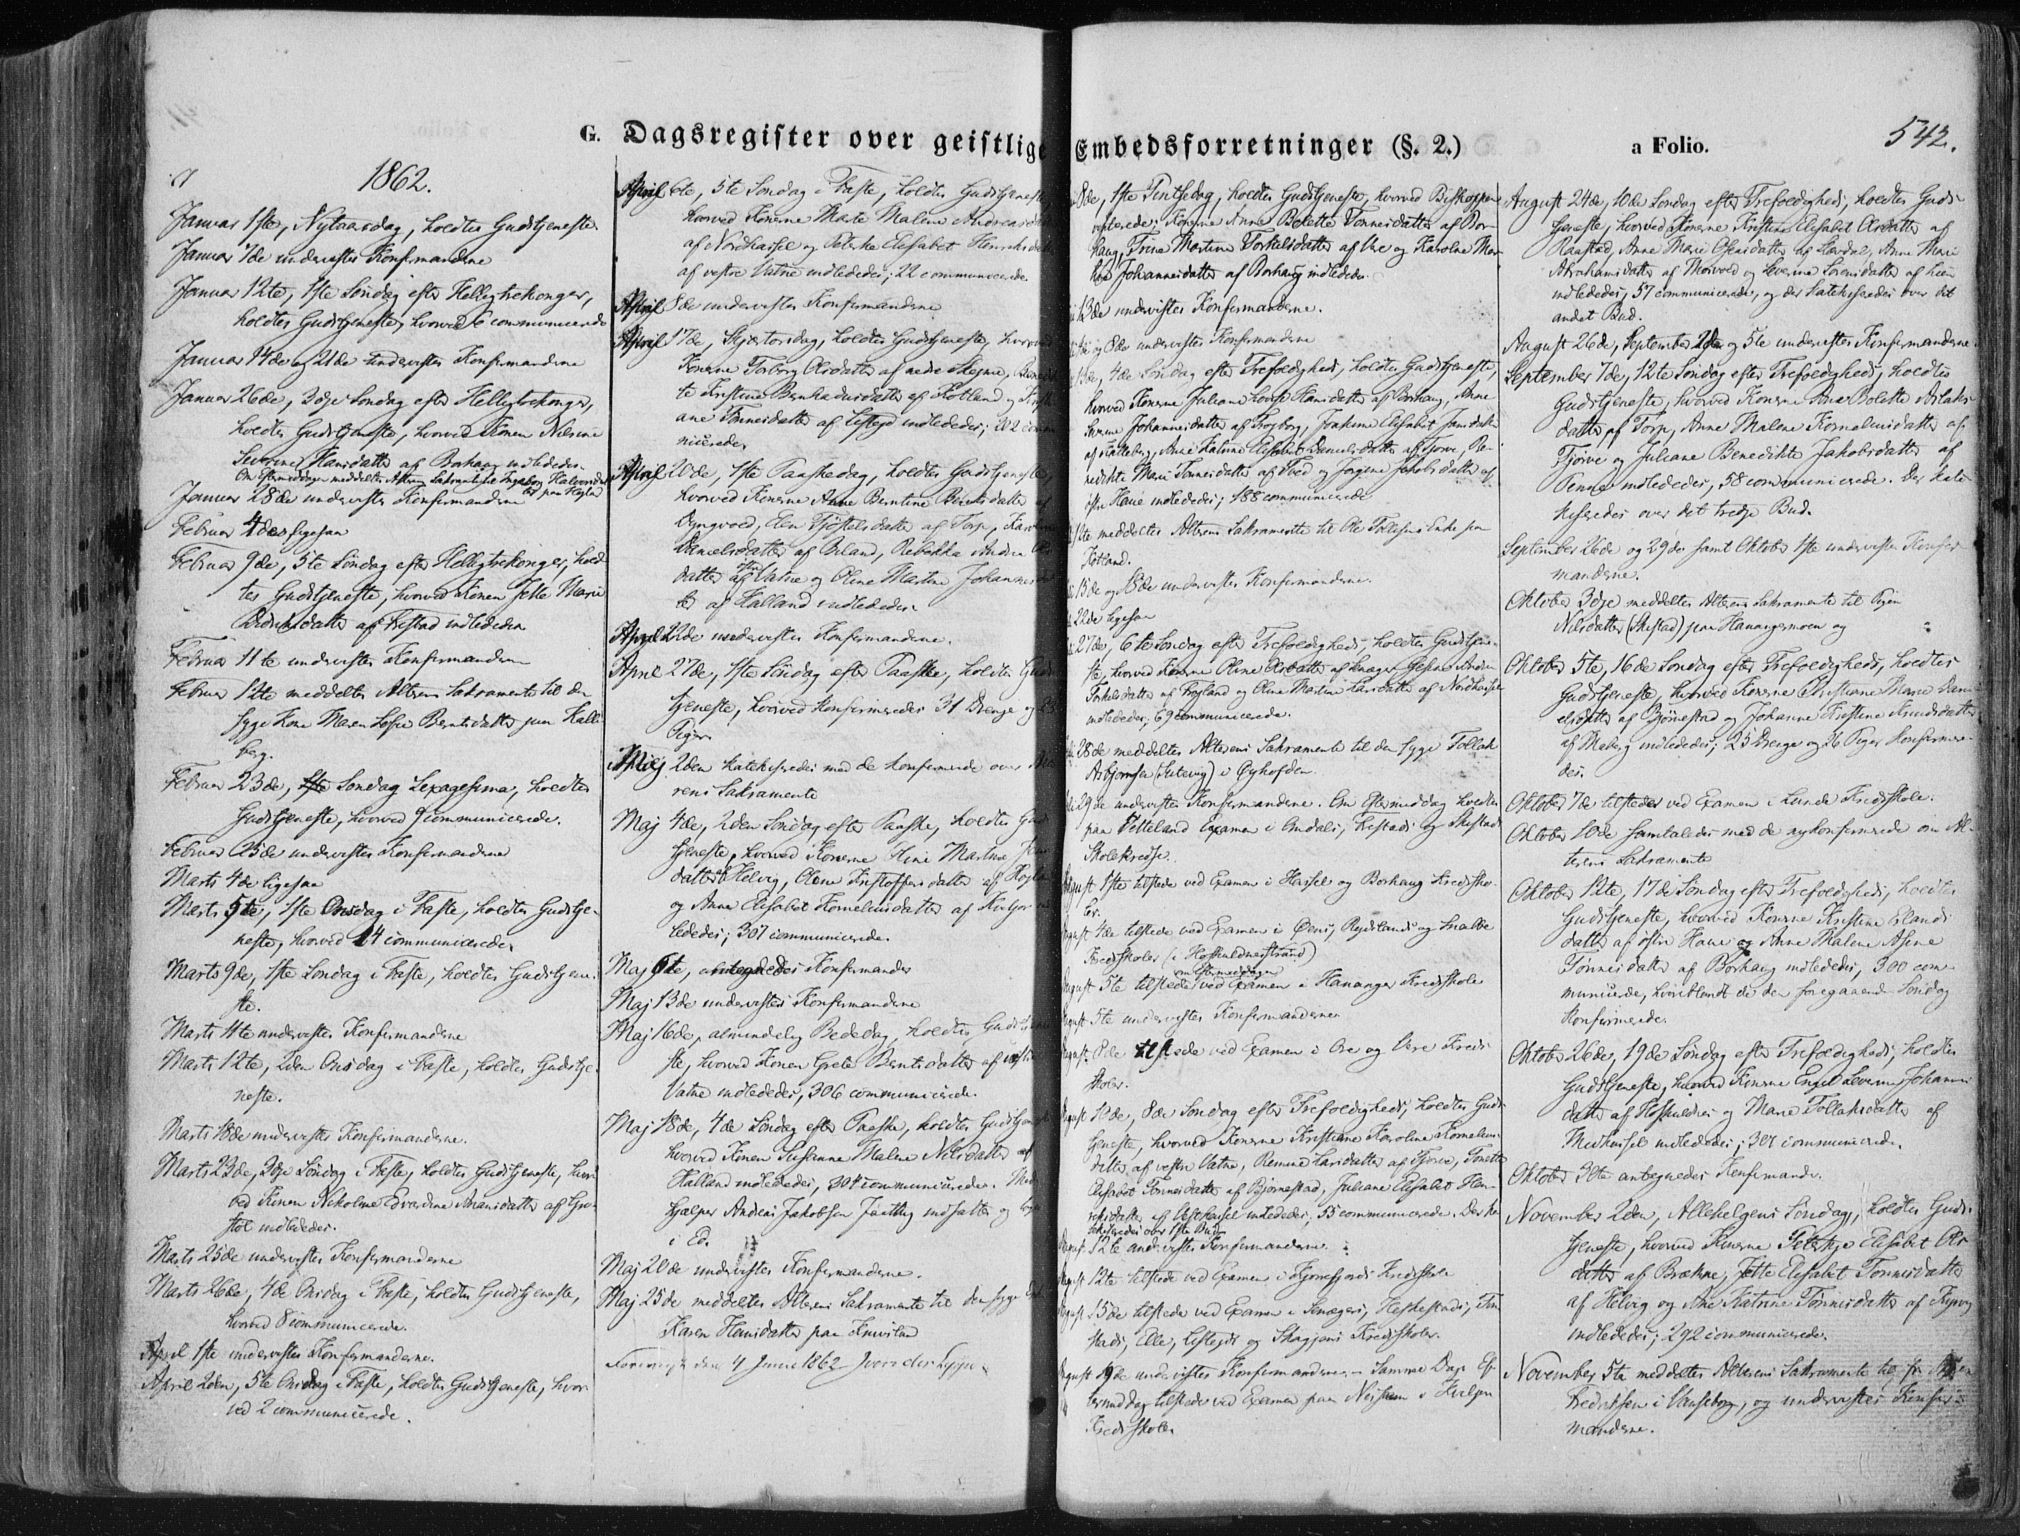 G. Dagsregister over geistlige Embedsforretninger (§. 2.)
a Folio.
542.
1862.
Januar 1ste, Nytaarsdag, holdtes Gudstjeneste.
Januar 7de undervistes Konfirmanderne
Januar 12te, 1ste Søndag efter Helligtrekonger,
holdtes Gudstjeneste, hvorved 6 communicerede
Januar 14de og 21de undervistes Konfirmanderne
Januar 26de, 3dje Søndag efter Helligtrekonger,
holdtes Gudstjeneste, hvorved Konen Nilsine
Severine Hansdatter af Borhaug indlededes.
Om Eftermiddagen meddeltes Altrens Sakramente til Ingeborg Halvorsdat
ter paa
Januar 28de undervistes Konfirmanderne
Februar 4de ligesaa
Februar 9de, 5te Søndag efter Helligtrekonger, hold
tes Gudstjeneste, hvorved Konen Jette Marie
datter af Vestad indlededes
Februar 11te undervistes Konfirmanderne
Februar 12te meddeltes Altrens Sakramente til den
syge Kone Maren Sofie Berntsdatter paa Kalle
berg.
Februar 23de, Søndag Sexagesima, holdtes
Gudstjeneste, hvorved 9 communicerede.
Februar 25de undervistes Konfirmanderne
Marts 4de ligesaa
Marts 5te, 1ste Onsdag i Faste, holdtes Gudstje-
neste, hvorved 14 communicerede.
Marts 9de, 1ste Søndag i Faste, holdtes Gudstjene-
ste.
Marts 11te undervistes Konfirmanderne
Marts 12te, 2den Onsdag i Faste, holdtes Gudstje-
neste.
Marts 18de undervistes Konfirmanderne.
Marts 23de, 3dje Søndag i Faste, holdtes Gudstjeneste, hvor
ved Konen Nikoline Edvardine Ananisdatter af
indlededes.
Marts 25de undervistes Konfirmanderne
Marts 26de, 4de Onsdag i Faste, holdtes Gudstjeneste,
hvorved 8 communicerede.
April 1ste undervistes Konfirmanderne.
April 2den, 5te Onsdag i Faste, holdtes Gudstjeneste, hvor
ved 2 communicerede.
April 6te, 5te Søndag i Faste, holdtes Gudstjeneste
hvorved Konerne Marie Malene Andreasdatter
af Nordhassel og Peterke Elisabet Henriksdatter
af vestre Vatne indlededes; 22 communicerede
April 8de undervistes Konfirmanderne
April 17de, Skjærtorsdag, holdtes Gudstjeneste, hvorved
Konerne Torborg Olsdatter af nedre Skeime,
te Kristine Bernhardusdatter af Kotland og
ane Tønnesdatter af Listeid indlededes; 202 comm
nicerede.
April 20de, 1ste Paaskedag, holdtes Gudstjeneste
hvorved Konerne Anne Berntine Berntsdatter af
Dyngvold, Elen datter af Torp, Karen
Danielsdatter af Briland, Rebekka Andrea Ols
datter af Vatne og Oline Martine Johannesdat
ter af Halland indlededes.
April 22de undervistes Konfirmanderne.
April 27de, 1ste Søndag efter Paaske, holdtes Guds
tjeneste, hvorved konfirmeredes 31 Drenge og
Piger.
Maj 2den katekiseredes med de konfirmerede over Alte
rens Sakramente
Maj 4de, 2den Søndag efter Paaske, holdtes Guds
tjeneste, hvorved Konerne Martine
datter af Helvig, Oline Kristoffersdatter af
og Anne Elisabet Kornelius datter af
lededes; 307 communicerede.
Maj 6te, antegnedes Konfirmander
Maj 13de undervistes Konfirmanderne
Maj 16de, almindelig Bededag, holdtes Gudstjene
ste, hvorved Konen Grete Berntsdatter af vestre
Vatne indlededes, 306 communicerede.
Maj 18de, 4de Søndag efter Paaske, holdtes Gudstjeneste
hvorved Konen Susanne Malene Nilsdatter af
Halland indlededes, 304 communicerede.
hjælper Andreas Jakobsen indsattes og
i Ed.
Maj 20de undervistes Konfirmanderne.
Maj 25de meddeltes Altrens Sakramente til den syge
Karen Hansdatter paa
den 4 Juni 1862
8de, 1ste Pintsedag, holdtes Gudstjeneste, hvorved Biskoppen
visiterede; Konerne Anne Bolette Tønnesdatter af Bor-
haug, Trine Martine Torkelsdatter af Ore og Karoline Mar
Johannesdatter af Borhaug indlededes.
13de undervistes Konfirmanderne.
og 8de undervistes Konfirmanderne
13de, 4de Søndag efter Trefoldighed, holdtes Gudstjeneste,
hvorved Konerne Juliane Lovise Hansdatter af Borhaug, Anne
Johannesdatter af Frogborg, Joakime Elisabet Jansdatter
af Kalleberg, Anne Kathrine Elisabet Danielsdatter af Tjørve, Be-
nedikte Marie Tønnesdatter af Tved og Jørgine Jakobsdatter af
østre Haue indlededes; 188 communicerede
12te meddeltes Altrens Sakramente til Ole Tollefsens Enke paa
Kotland.
15de og 18de undervistes Konfirmanderne.
22de ligesaa
27de, 6te Søndag efter Trefoldighed, holdtes Gudstjene-
ste, hvorved Konerne Oline Olsdatter af
Torkelsdatter af Høyland og Oline Martine Larsdatter af Nordhassel
indlededes, 69 communicerede.
28de meddeltes Altrens Sakramente til den syge Tollak
Asbjørnsen i
29de undervistes Konfirmanderne. Om Eftermiddag holdtes
paa Vetteland Examen i Omdals, Vestads og Skeistads
Skolekredse.
August 1ste tilstede ved Examen i Hassel og Borhaug Kredssko-
ler.
August 4de tilstede ved Examen i Ouens, Rydlands og
Kredsskoler
om Eftermiddagen
August 5te tilstede ved Examen i Hananger Kredsskole
August 5te undervistes Konfirmanderne
August 8de tilstede ved Examen i Ore og Vere Kreds
skoler.
August 10de, 8de Søndag efter Trefoldighed, holdtes Guds
tjeneste, hvorved Konerne Kristiane Karoline Kornelius
datter af vestre Vatne, Remine Larsdatter af Tjørve, Tonette
Elisabet Tønnesdatter af Bjørnestad, Juliane Elisabet Hen-
riksdatter af Vesthassel indlededes; 55 communicerede. Der ka
tekiseredes over 1ste Bud.
August 12te undervistes Konfirmanderne.
August 12te tilstede ved Examen i Kredsskole
August 15de tilstede ved Examen i Hesthestads,
stads, Elle, Listeids og Skagjens Kredsskoler.
August 19de undervistes Konfirmanderne. - Samme Dags Ef
termiddag tilstede ved Examen paa i
Kredsskole
August 24de, 10de Søndag efter Trefoldighed, holdtes Guds-
tjeneste, hvorved Konerne Kristine Elisabet Olsdatter af
Raastad, Anne Marie Olausdatter af Lervdal, Anne Marie
Abrahamsdatter af Morvold og Severine Sørensdatter af
indlededes, 57 communicerede, og der katekiseredes over det
andet Bud.
August 26de, September 2den og 5te undervistes Konfirmanderne
September 7de, 12te Søndag efter Trefoldighed, holdtes
Gudstjeneste, hvorved Konerne Anne Bolette Aslaks-
datter af Torp, Anne Malene Korneliusdatter af
Tjørve og Juliane Benedikte Jakobsdatter af
Penne indlededes, 58 communicerede. Der kate-
kiseredes over det tredje Bud.
September 26de og 29de samt Oktober 1ste undervistes Konfir-
manderne.
Oktober 3dje meddeltes Altrens Sakramente til Pigen
Nilsdatter (Skeistad) paa Hanangermoen og
Oktober 5te, 16de Søndag efter Trefoldighed, holdtes
Gudstjeneste, hvorved Konerne Kristiane Marie Dani
elsdatter af Bjørnestad og Johanne Kristine Knudsdatter
af Maberg indlededes; 25 Drenge og 36 Piger konfirmere-
des.
Oktober 7de tilstedes ved Examen i Lunde Kredsskole.
Oktober 10de samtaledes med de nykonfirmerede om Al-
terens Sakramente
Oktober 12te, 17de Søndag efter Trefoldighed, holdtes
Gudstjeneste, hvorved Konerne Kristine Erlands
datter af østre Haue og Anne Malene Asine
Tønnesdatter af Borhaug indlededes, 300 com-
municerede, hvoriblandt de den foregaaende Søndag
Konfirmerede.
Oktober 26de, 19de Søndag efter Trefoldighed, holdtes
Gudstjeneste, hvorved Konerne Engel Severine Johannes
datter af og Marie Tollaksdatter af
Midhassel indlededes; 307 communicerede.
Oktober 30te antegnedes Konfirmander.
November 2den, Allehelgens Søndag, holdtes Guds-
tjeneste, hvorved Konerne Peterkje Elisabet Ols
datter af Brækne, Jette Elisabet Tønnesdatter
af Helvig og Ane Katrine Tønnesdatter af
indlededes; 292 communicerede.
November 5te meddeltes Altrens Sakramente til
Fredriksen i Vanseborg, og undervistes Konfir-
manderne.